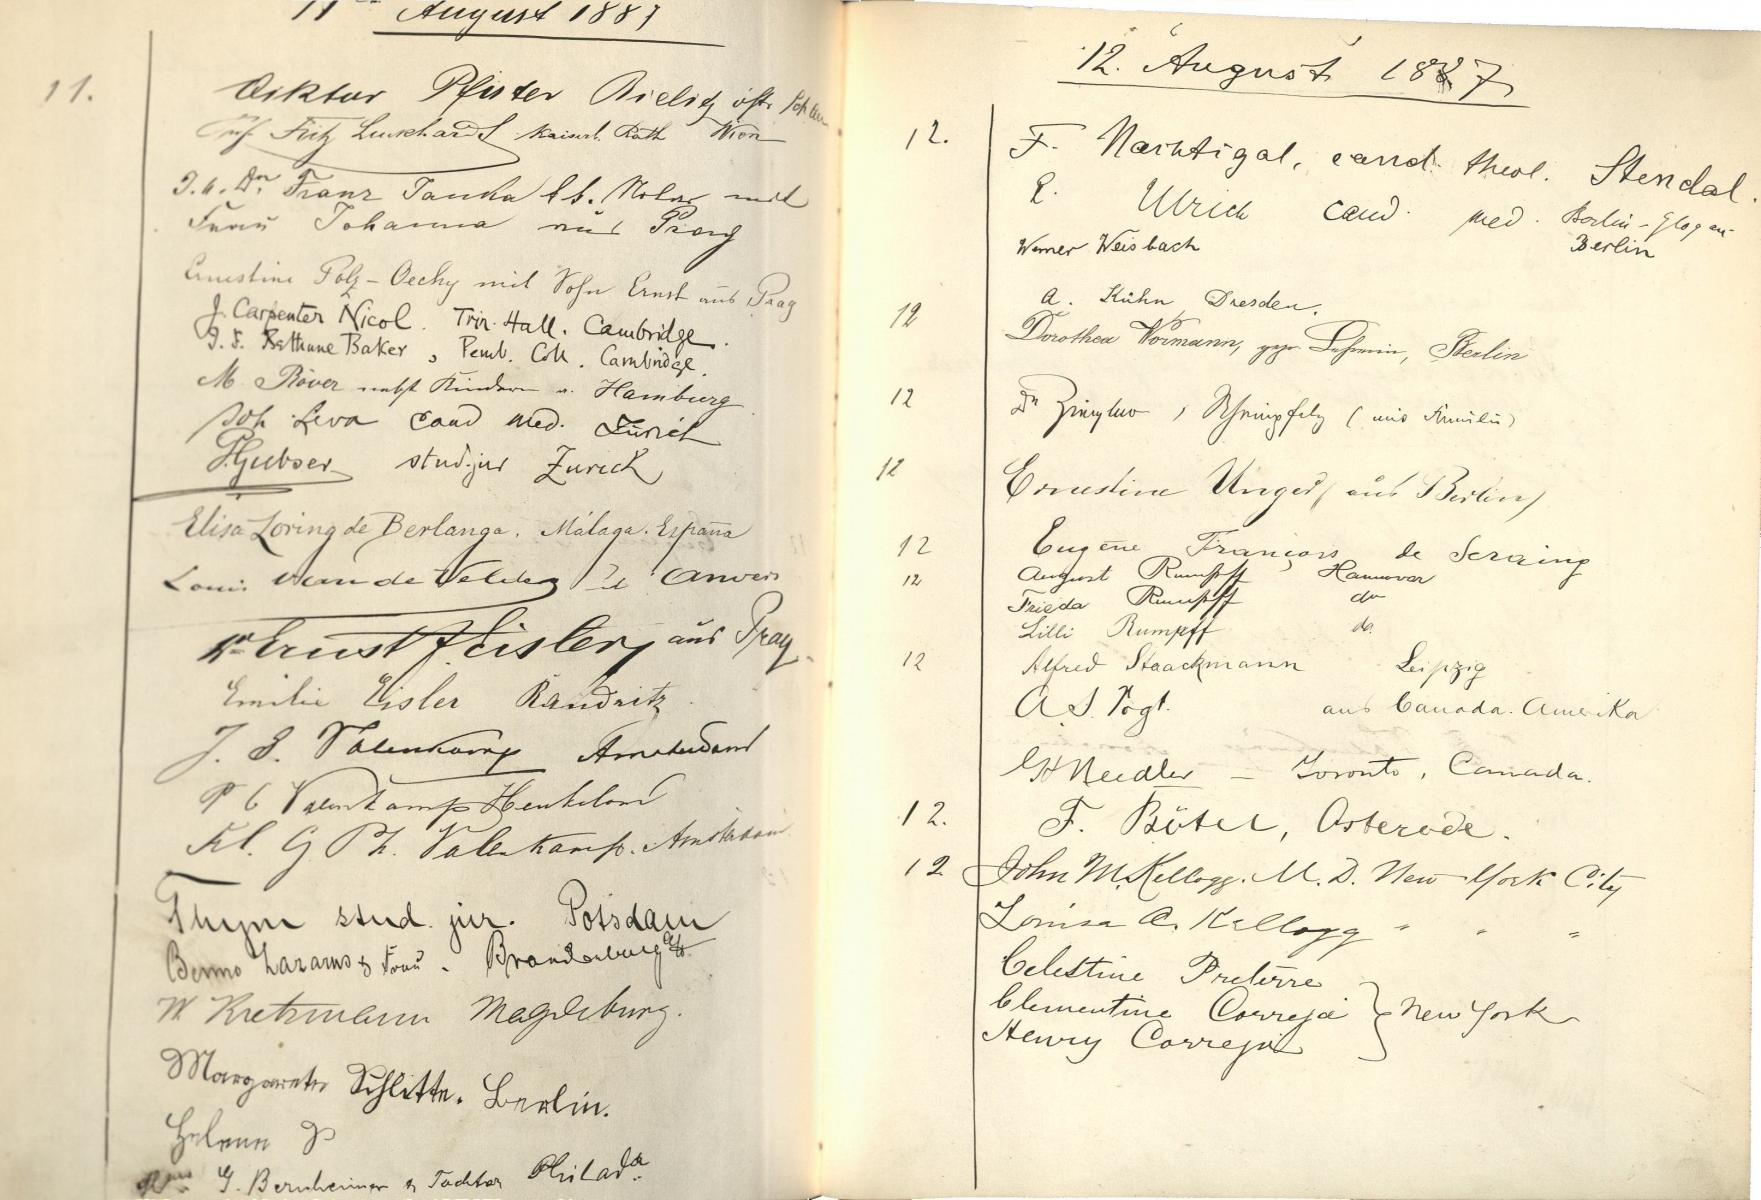 11. August 1887
11.
Pfister Bielitz
Fritz Luckhardt Kaiserl. Rath Wien
Dr. Franz mit
Frau Johanna aus Prag
Ernestine mit Sohn Ernst aus Prag
J. Carpenter Nicol. Trin. Hall. Cambridge.
J. F. Bethune Baker, Pemb. Coll. Cambridge.
M. Röver nebst Kindern a. Hamburg
Joh. Leva cand med. Zürich
P. Gubser stud. jur Zürich
Elisa Loring de Berlanga. Málaga. España
Louis van de Velde Anvers
Dr Ernst Eisler, aus Prag.
Emilie Eisler Raudnitz.
J. Valenkamp Amsterdam
P C Valenkamp
G Ph. Valenkamp. Amsterdam
Thym stud. jur. Potsdam
Benno Lazarus & Frau. Brandenburg a/H.
W Kretzmann Magdeburg.
Margarete Schlitte. Berlin.
Helene
G. Bernheimer & Tochter Philada.
12. August 1887
12.
F. Nachtigal, cand. theol. Stendal.
Ulrich cand. med. Berlin-Glogau
Werner Weisbach Berlin
12
A. Kühn Dresden.
Dorothea Wormann, Berlin
12
Dr
12
Ernestine Unger (aus Berlin)
12 Eugène François de Seraing
12 August Rumpff Hannover
Frieda Rumpff do
Lilli Rumpff do.
12 Alfred Staackmann Leipzig
A. S. Vogt. aus Canada. Amerika
GH Needler – Toronto, Canada.
12. F. Bötel, Osterode.
12 John M. Kellogg. M. D. New York City
Louisa A. Kellogg " " "
Celestine Preterre
Clementine Correja } New York
Henry Correja